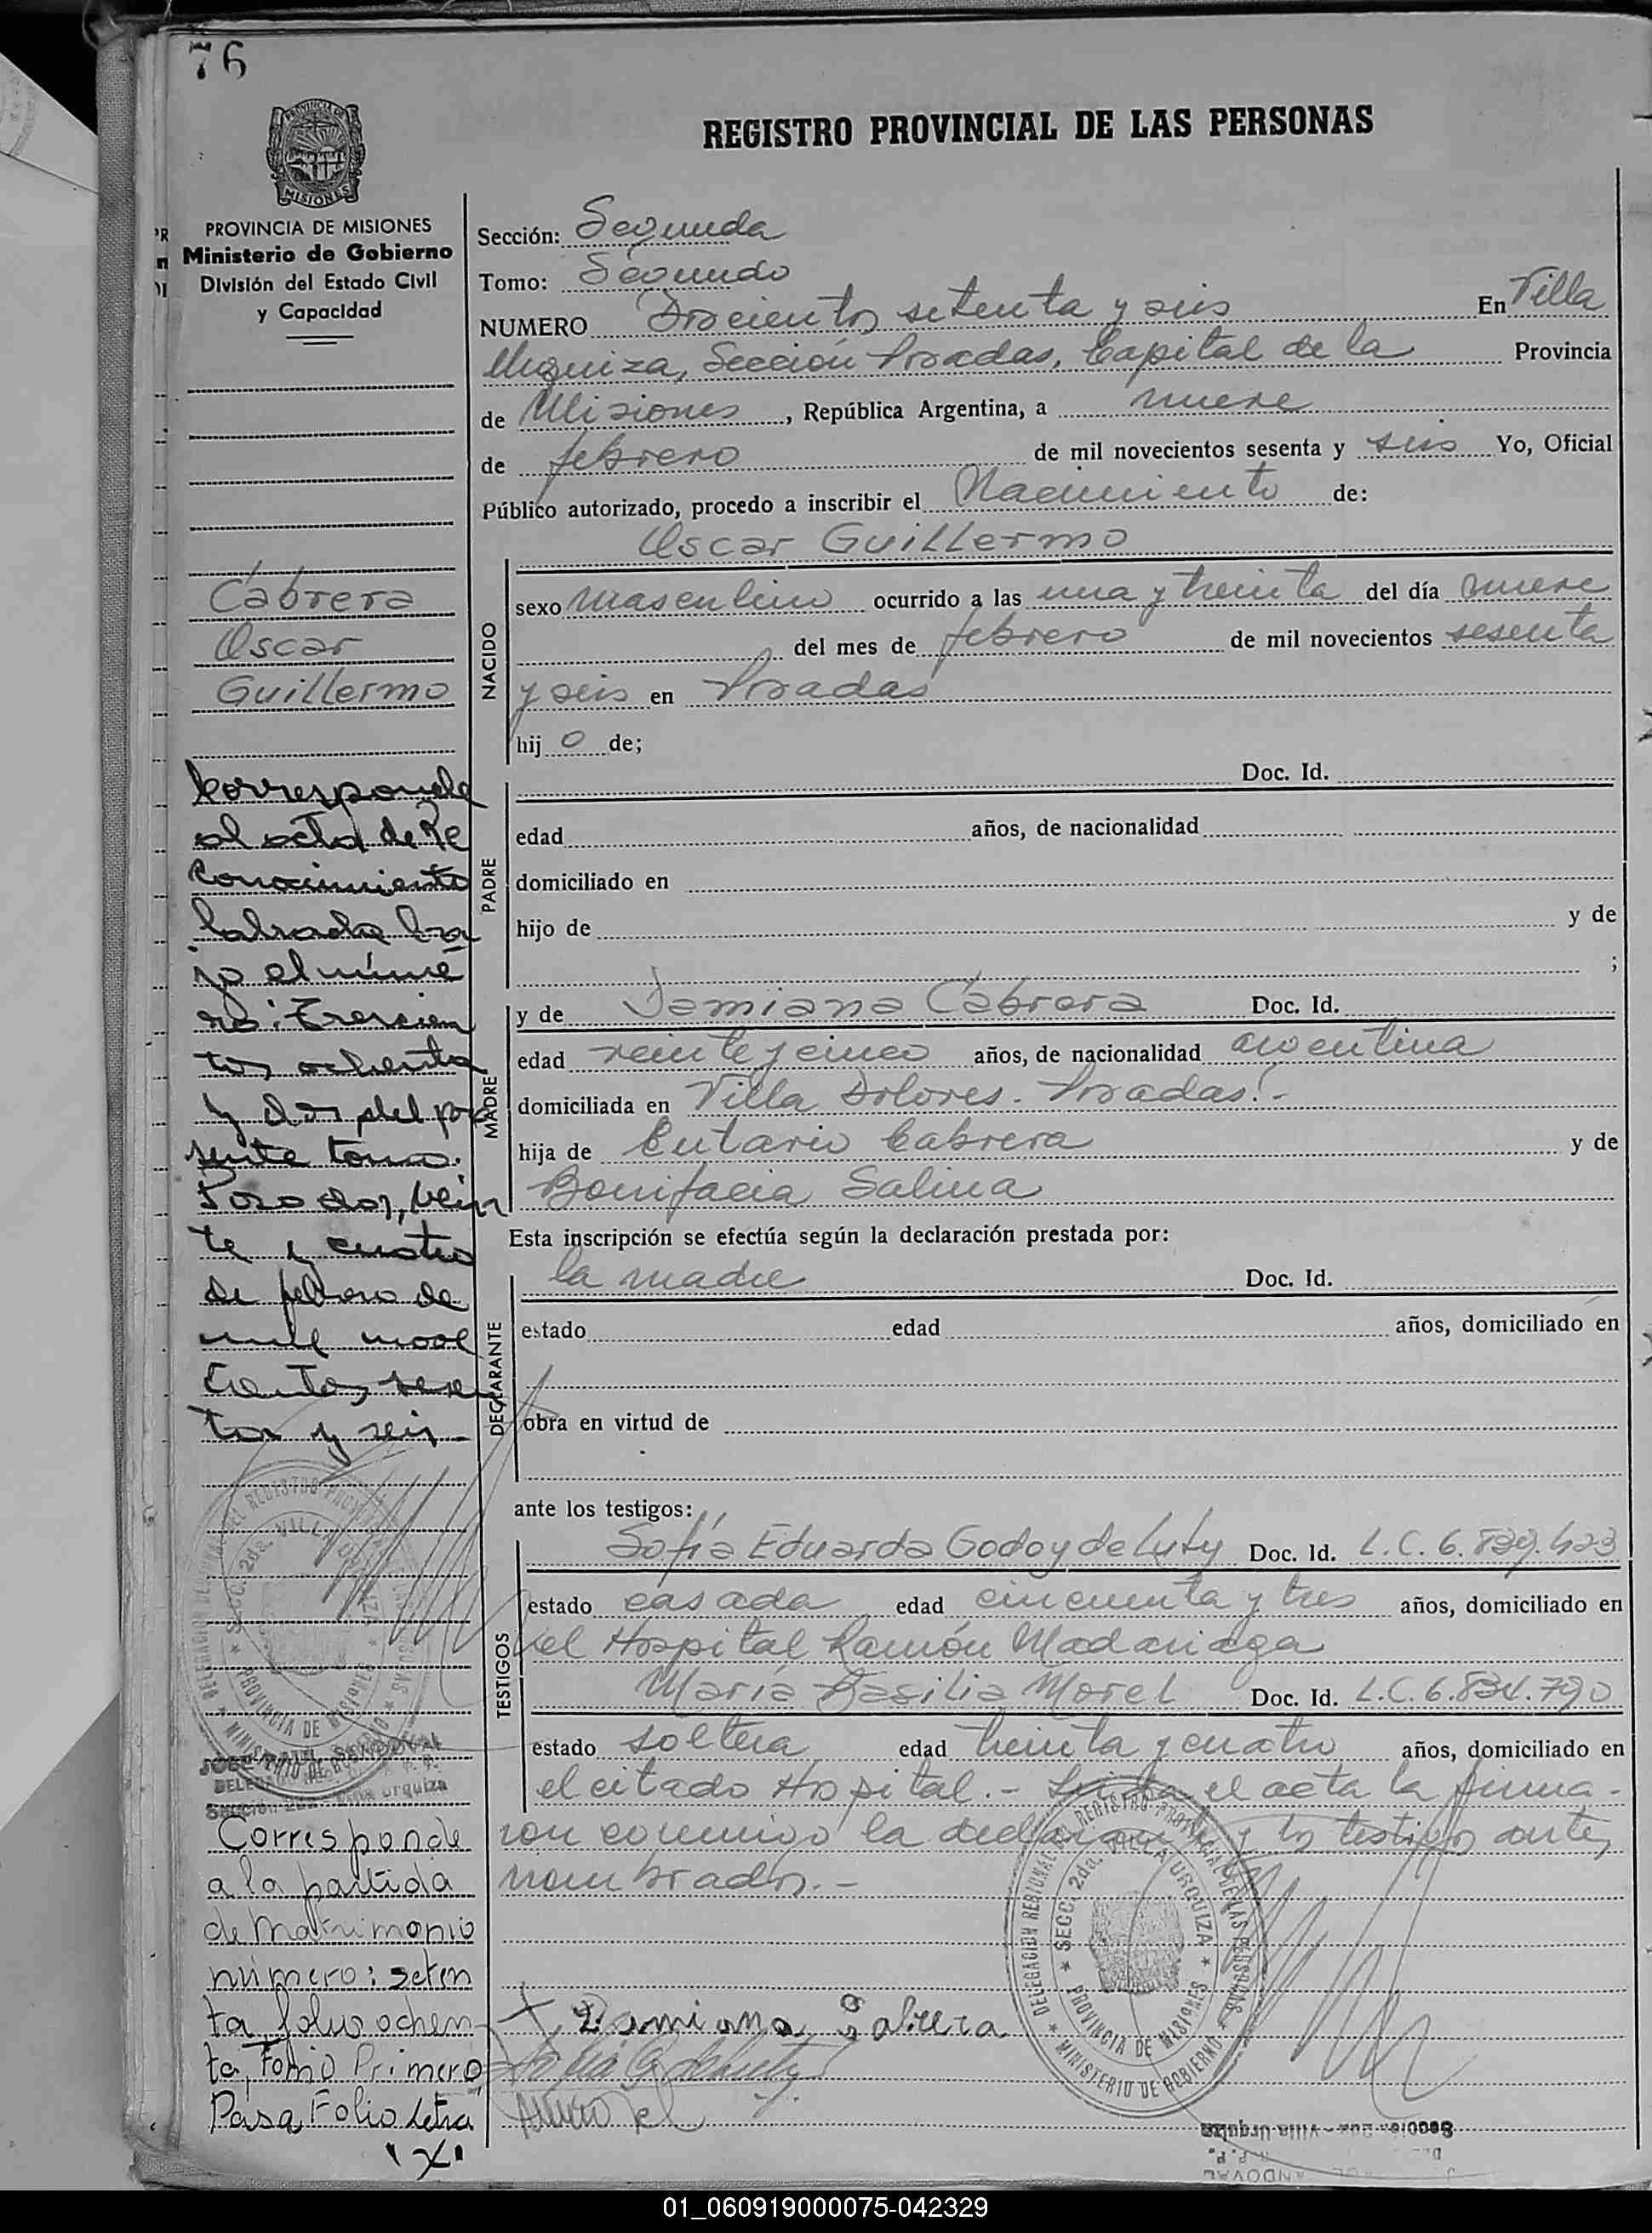 76
PROVINCIA DE
MISIONES
PROVINCIA DE MISIONES
Ministerio de Gobierno
División del Estado Civil
y Capacidad
Cabrera
Oscar
Guillermo
Corresponde
al acta de Re
conocimiento
labrada ba
jo el núme
ro: Trescien
tos ochenta
y dos del pre
sente tomo.
Posadas, vein
te y cuatro
de febrero de
mil nove
cientos sesen
ta y seis
Corresponde
a la partida
de Matrimonio
número: seten
ta folio ochen
ta, Tomo Primero
Pasa Folio letra
"X"
REGISTRO PROVINCIAL DE LAS PERSONAS
Sección: Segunda
Tomo: Segundo
NUMERO Doscientos setenta y seis En Villa
Urquiza, Sección Posadas, Capital de la Provincia
de Misiones, República Argentina, a nueve
de febrero de mil novecientos sesenta y seis Yo, Oficial
Público autorizado, procedo a inscribir el Nacimiento de:
Oscar Guillermo
NACIDO
sexo masculino ocurrido a las una y treinta del día nueve
del mes de febrero de mil novecientos sesenta
y seis en Posadas
hij o de;
PADRE
Doc. Id.
edad años, de nacionalidad
domiciliado en
hijo de y de
;
MADRE
y de Damiana Cabrera Doc. Id.
edad veinte y cinco años, de nacionalidad argentina
domiciliada en Villa Dolores. Posadas.-
hija de Eutario Cabrera y de
Bonifacia Salina
Esta inscripción se efectúa según la declaración prestada por:
DECLARANTE
la madre Doc. Id.
estado edad años, domiciliado en
obra en virtud de
ante los testigos:
TESTIGOS
Sofía Eduarda Godoy de Doc. Id. L.C. 6.839.423
estado casada edad cincuenta y tres años, domiciliado en
el Hospital Ramón Madariaga
María Basilia Morel Doc. Id. L.C. 6.834.790
estado soltera edad treinta y cuatro años, domiciliado en
el citado Hospital.- Leida el acta la firma-
ron conmigo la declarante y los testigos antes
nombrados.-
Damiana Cabrera
DELEGACION REGIONAL DEL REGISTRO PROVINCIAL DE LAS PERSONAS
SECC. 2da. VILLA URQUIZA
PROVINCIA DE MISIONES
MINISTERIO DE GOBIERNO
Sección 2da - Villa Urquiza
01_060919000075-042329